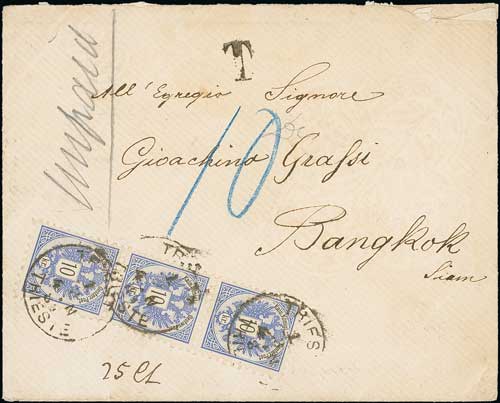 T
Unpaid
All' Egregio Signore
10
Gioachino Grassi
Bangkok
Siam
10 10 10
TRIESTE TRIESTE TRIESTE
25 Ct